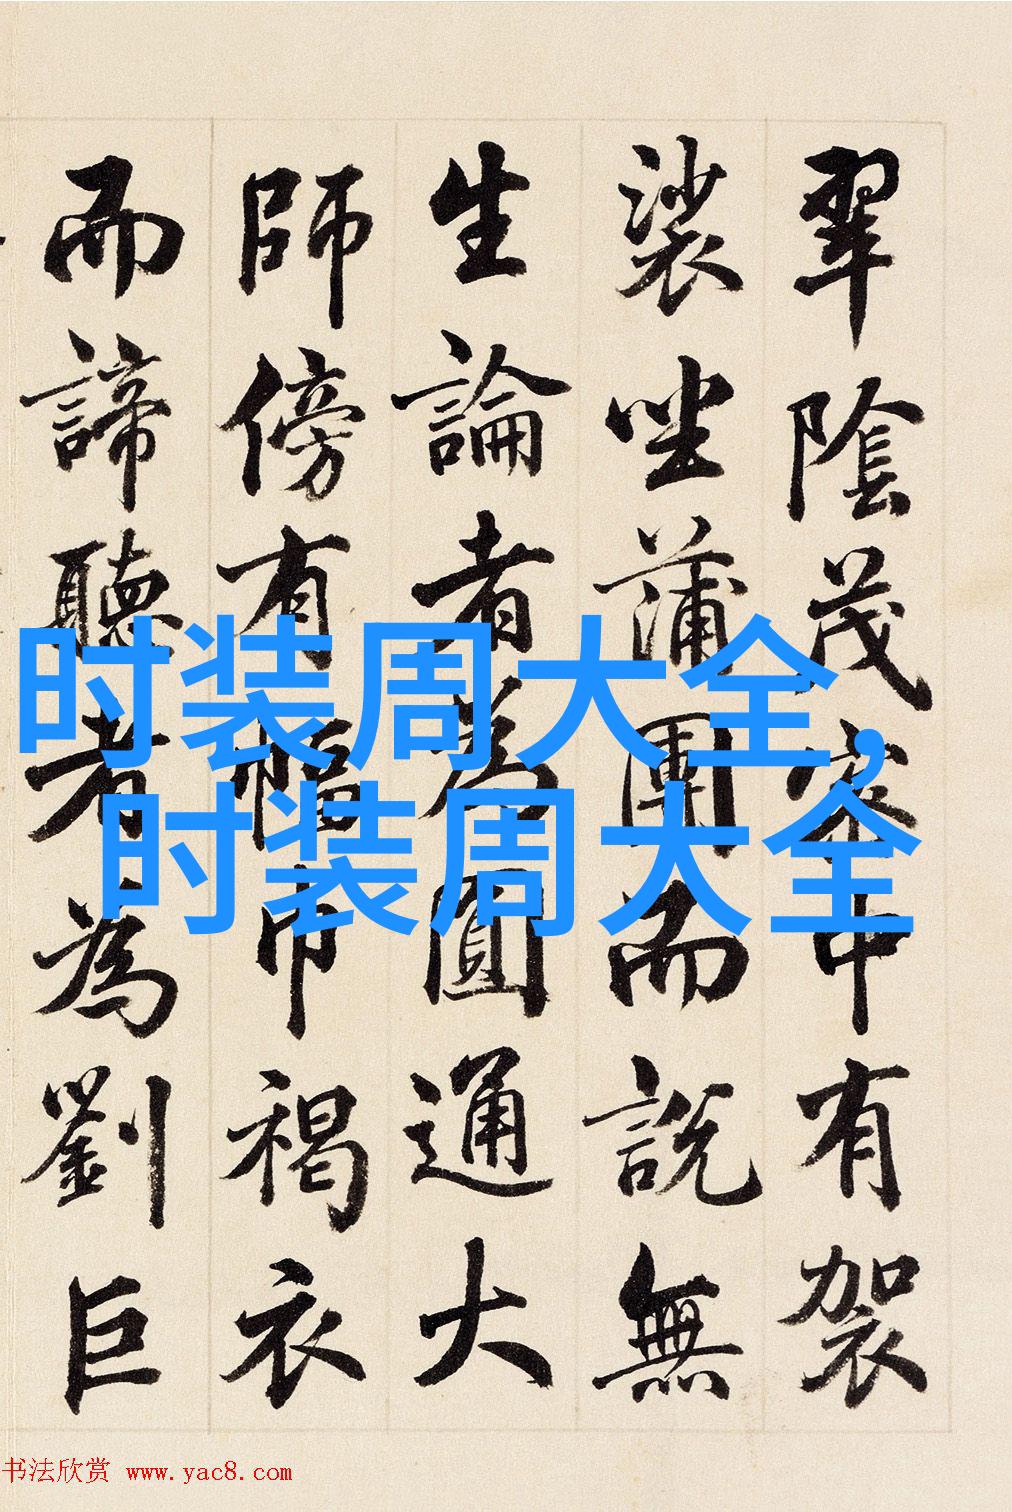 翠陰茂密中有袈
裟坐蒲團而說無
生論者為圓通大
師傍有幅巾褐衣
而諦聽者為劉巨
时装周大全,
时装周大全
书法欣赏 www.yac8.com